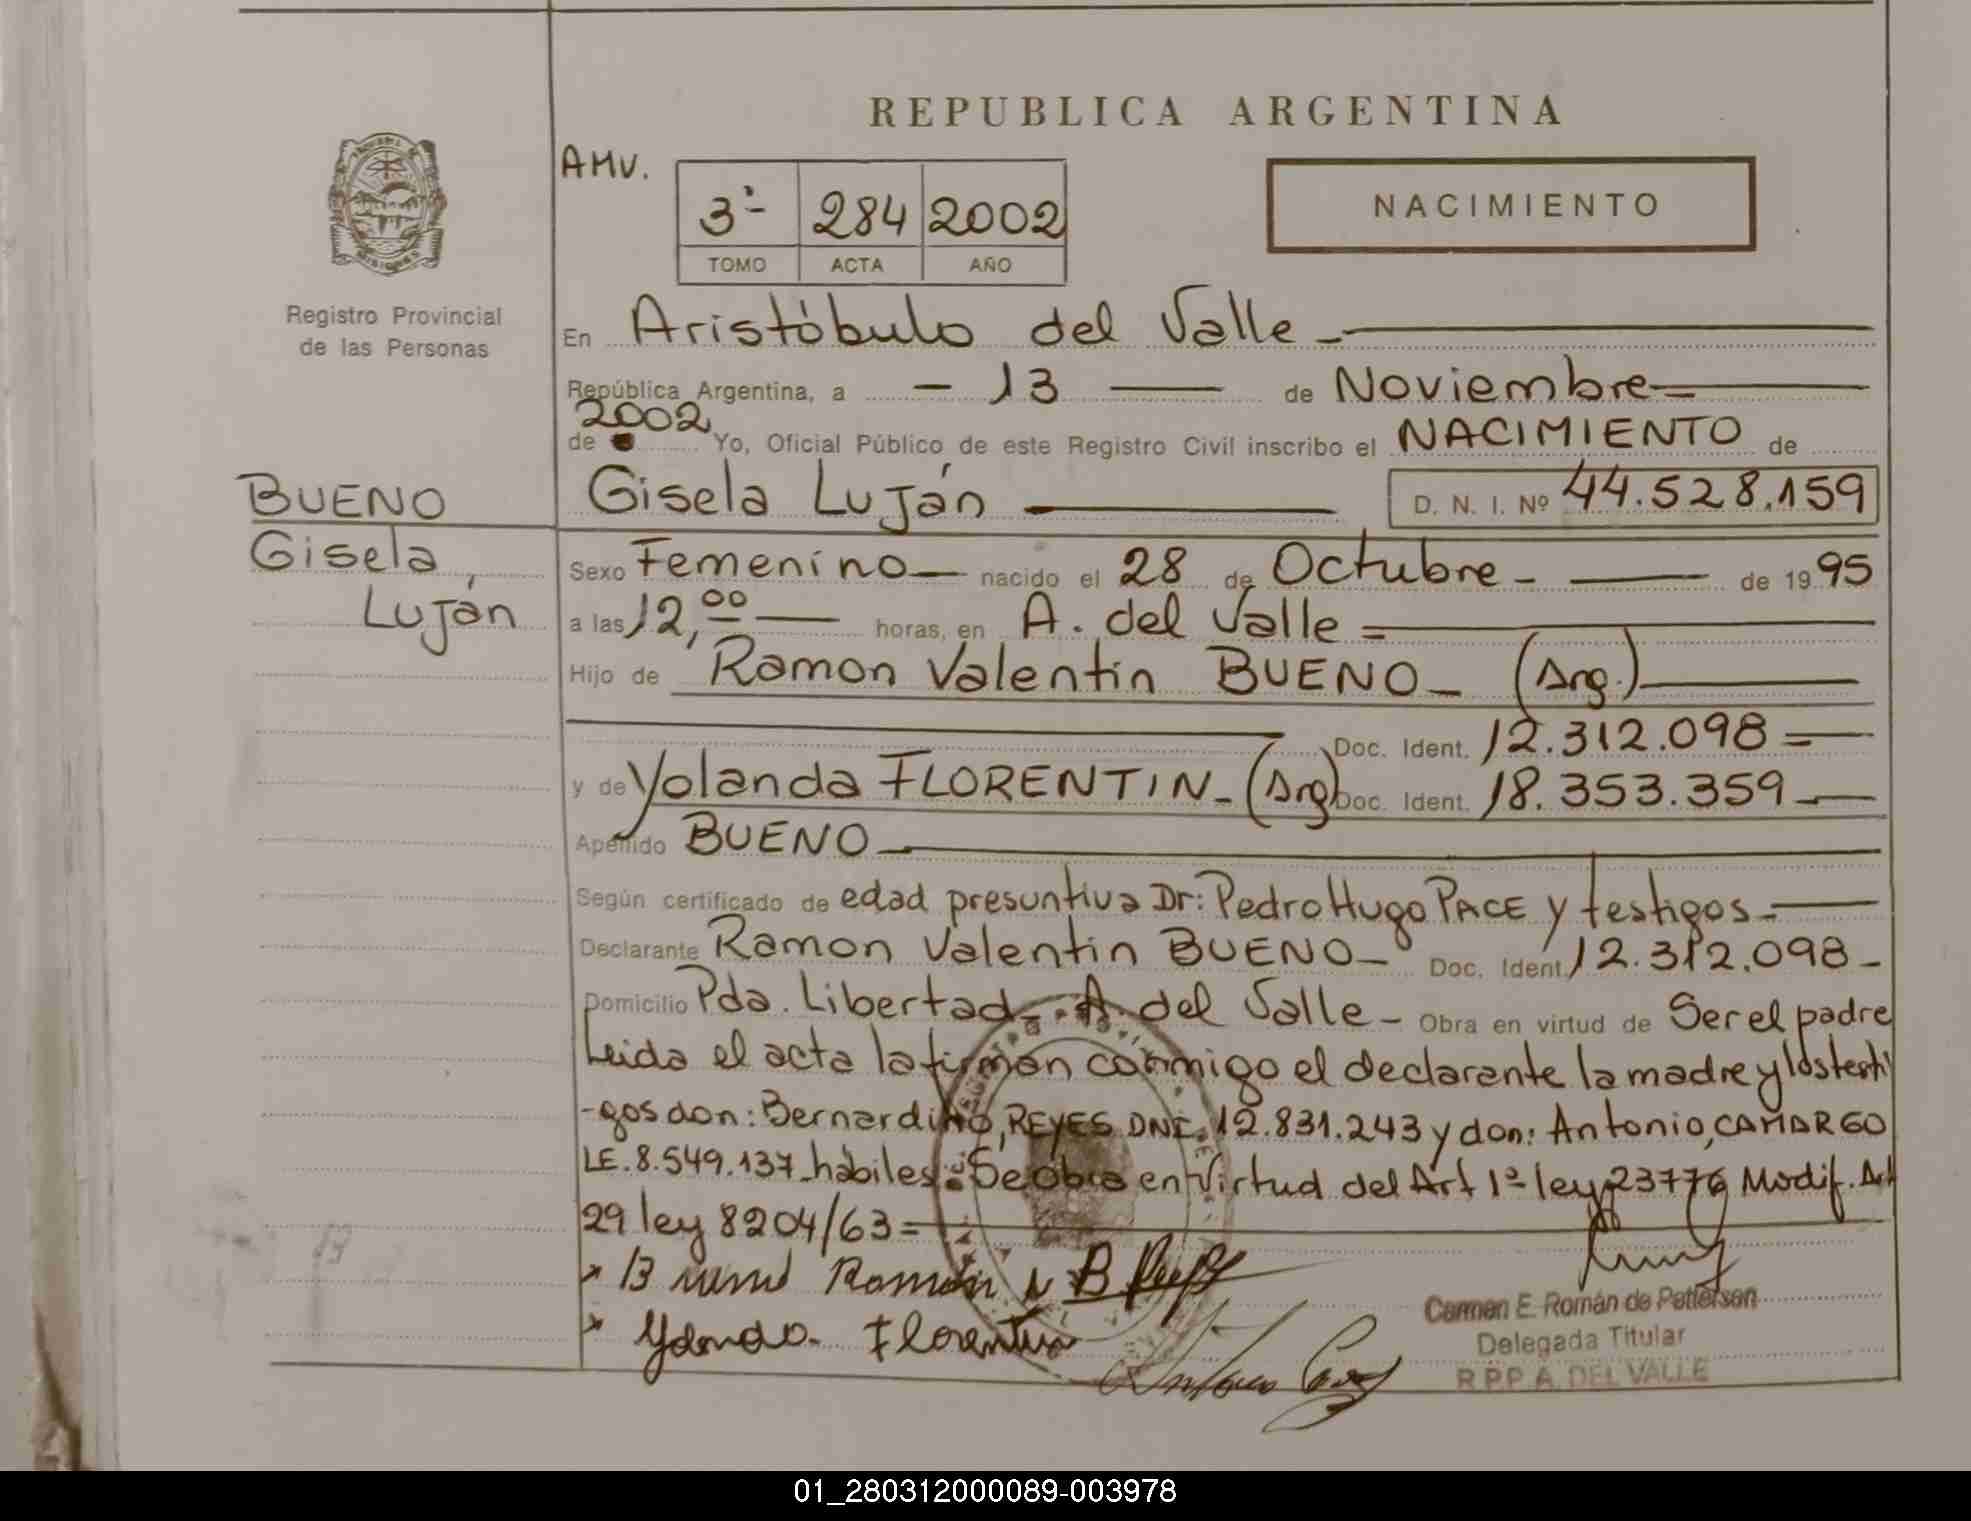 REPUBLICA ARGENTINA
AMV.
3º- 284 2002
TOMO ACTA AÑO
NACIMIENTO
Registro Provincial
de las Personas
En Aristóbulo del Valle -
República Argentina, a - 13 — de Noviembre =
de 2002 Yo, Oficial Público de este Registro Civil inscribo el NACIMIENTO de
BUENO
Gisela,
Luján
Gisela Luján — D. N. I. Nº 44.528.159
Sexo Femenino — nacido el 28 de Octubre - — de 1995
a las 12,00 — horas, en A. del Valle =
Hijo de Ramon Valentin BUENO - (Arg.) —
Doc. Ident. 12.312.098 =
y de Yolanda FLORENTIN - (Arg) Doc. Ident. 18.353.359 -
Apellido BUENO -
Según certificado de edad presuntiva Dr: Pedro Hugo PACE y testigos -
Declarante Ramon Valentin BUENO - Doc. Ident. 12.312.098 -
Domicilio Pda. Libertad - A. del Valle - Obra en virtud de Ser el padre
Leida el acta la firman conmigo el declarante la madre y los testi
-gos don: Bernardino, REYES DNI. 12.831.243 y don: Antonio, CAMARGO
LE. 8.549.137 habiles: Se obra en Virtud del Art 1º ley 23776 Modif. Art
29 ley 8204/63 =
Ramon
Florentin
Carmen E. Román de Pettersen
Delegada Titular
R.P.P. A. DEL VALLE
01_280312000089-003978